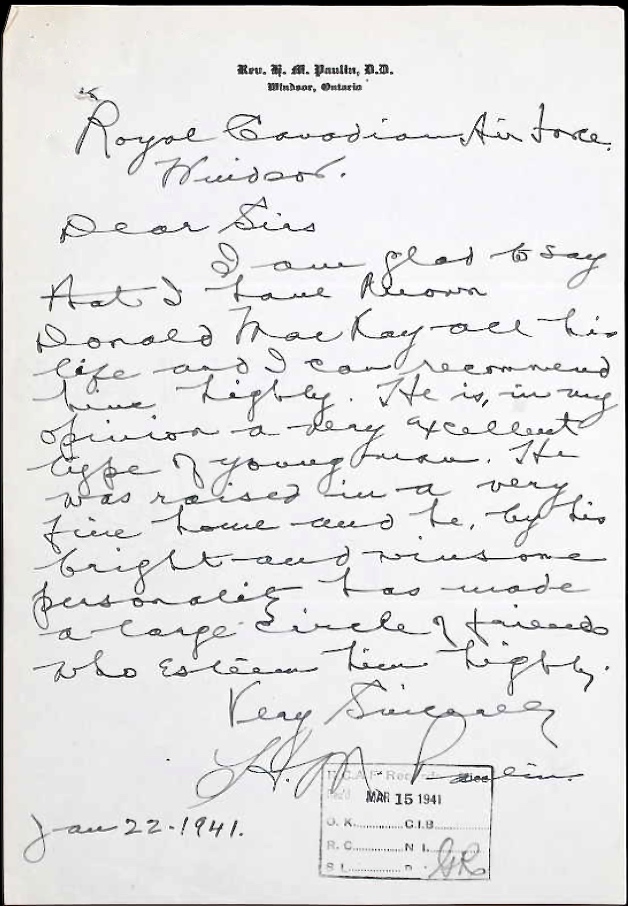 Rev. H. M. Paulin, D.D.
Windsor, Ontario
Royal Canadian Air Force.
Windsor.
Dear Sirs
I am glad to say
that I have known
Donald MacKay all his
life and I can recommend
him highly. He is, in my
opinion a very excellent
type of young man. He
was raised in a very
fine home and he, by his
bright and winsome
personality has made
a large circle of friends
who esteem him highly.
Very Sincerely
H. M. Paulin.
R.C.A.F. Records Office
Rec'd MAR 15 1941
O. K. C.I.B.
R. C. N I.
S I.
GR
Jan 22-1941.